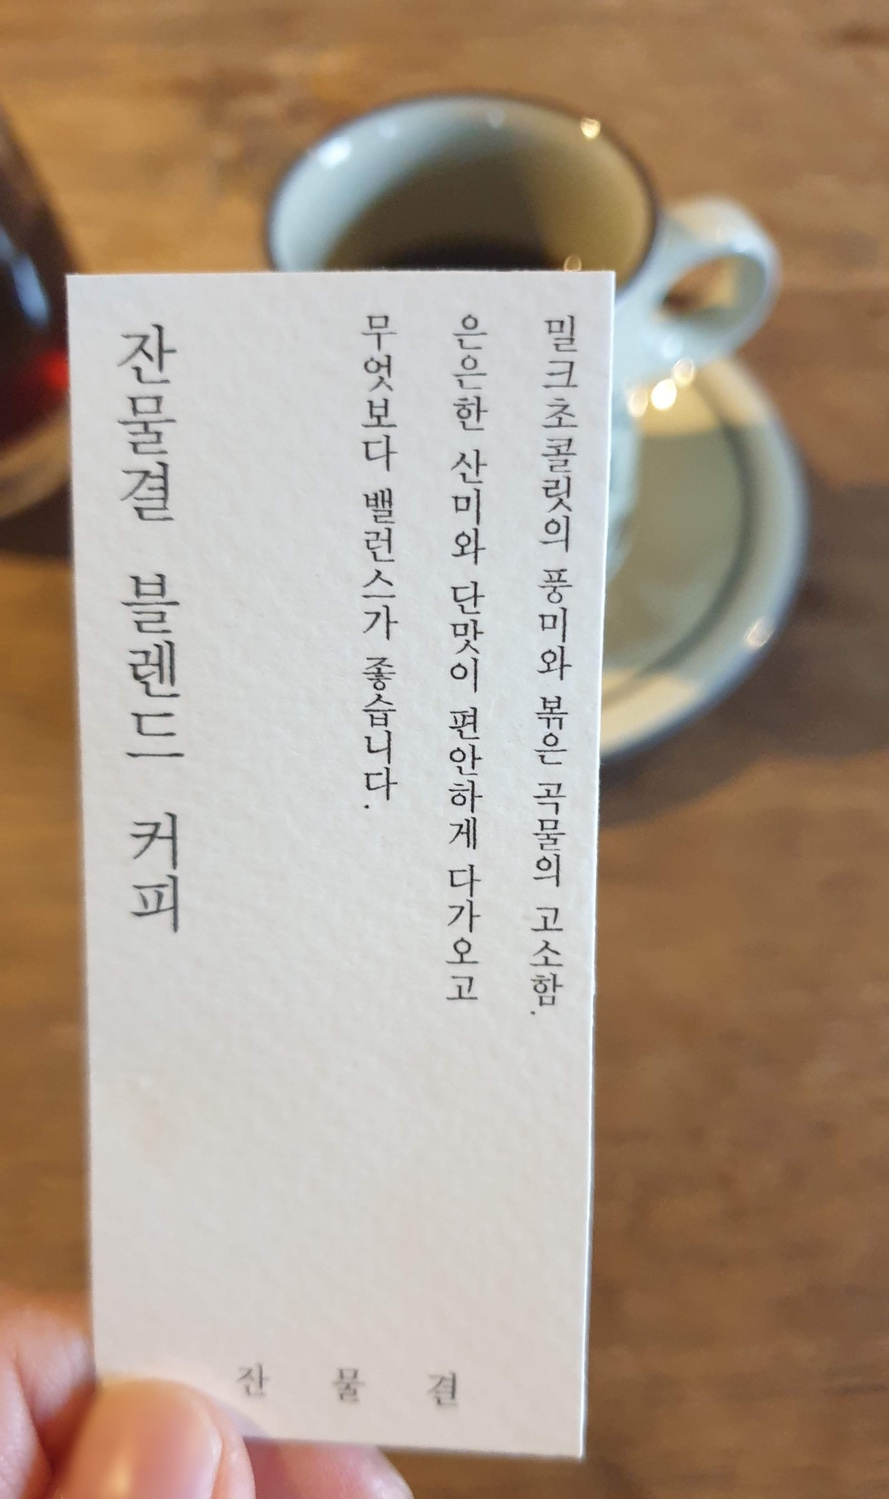 밀크초콜릿의 풍미와 볶은 곡물의 고소함.
은은한 산미와 단맛이 편안하게 다가오고
무엇보다 밸런스가 좋습니다.
잔물결 블렌드 커피
잔 물 결